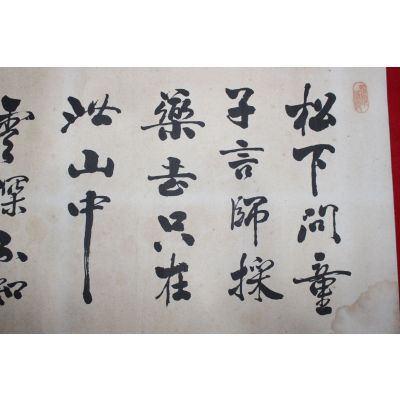 松下问童
子言師採
藥去只在
此山中
雲深不知